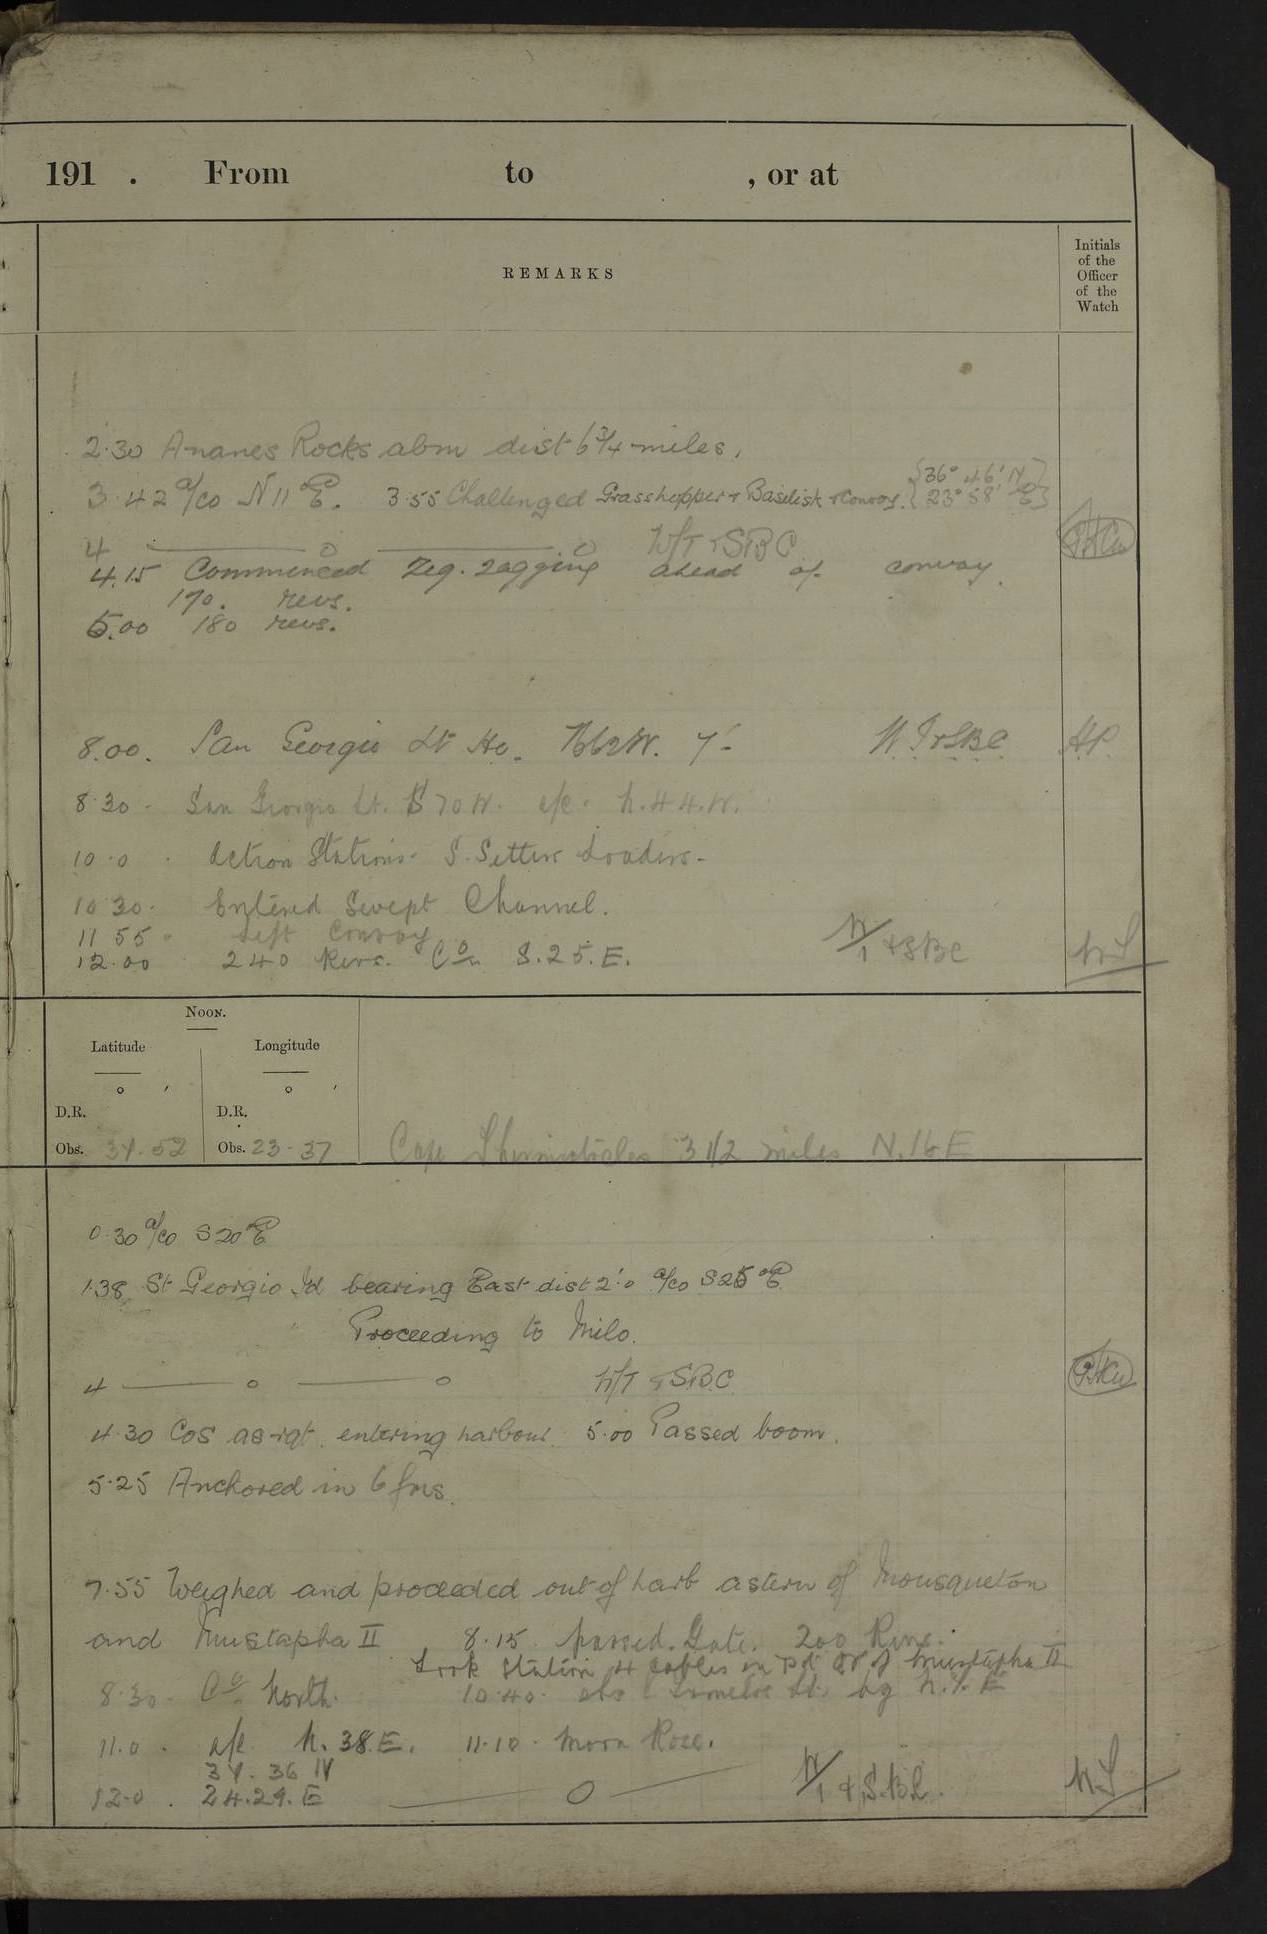 191 . From to , or at
REMARKS
Initials of the Officer of the Watch
2.30 Ananes Rocks abm dist 6¾ miles.
3.42 a/co N 11° E. 3.55 Challenged Grasshopper + Basilisk + Convoy. {36° 46' N 23° 58' E}
4 ——o ——o W/T + SBC
4.15 Commenced Zig-zagging ahead of convoy.
170. revs.
5.00 180 revs.
8.00. San Georgio Lt Ho. W. 7'. W.T + SBC
8.30. San Giorgio Lt. S 70 W. a/c. N.44.W.
10.0. Action Stations. S. Setters Loaders.
10.30. Entered Swept Channel.
11.55. Left Convoy
12.00 240 Revs. Co. S.25.E. W/T + SBC
NOON.
Latitude Longitude
° ' ° '
D.R. D.R.
Obs. 37.52 Obs. 23-37 Cape Themistocles 3 1/2 miles N.16 E
0.30 a/co S 20° E
1.38 St Georgio Id bearing East dist 2'.0 a/co S 25° E
Proceeding to Milo.
4 ——o ——o W/T + SBC
4.30 Cos as rqt. entering harbour. 5.00 Passed boom.
5.25 Anchored in 6 fms.
7.55 Weighed and proceeded out of harb astern of Mousqueton
and Mustapha II, 8.15. passed Gate. 200 Revs.
Took Station 4 cables on of Mustapha II
8.30. Co. North. 10.40. obs Lt. bg N. E
11.0. a/c N.38.E. 11.10. Moon Rose.
37. 36 N
12.0. 24.29.E ——o—— W/T + S.B.C.